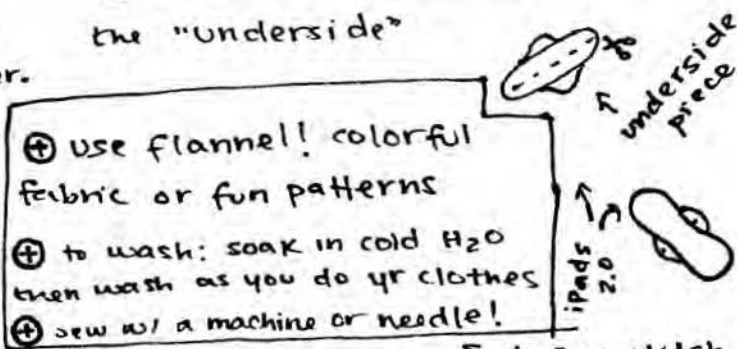 the "underside"
er.
⊕ use flannel! colorful
fabric or fun patterns
⊕ to wash: soak in cold H₂O
then wash as you do yr clothes
⊕ sew w/ a machine or needle!
underside
piece
iPads
2.0